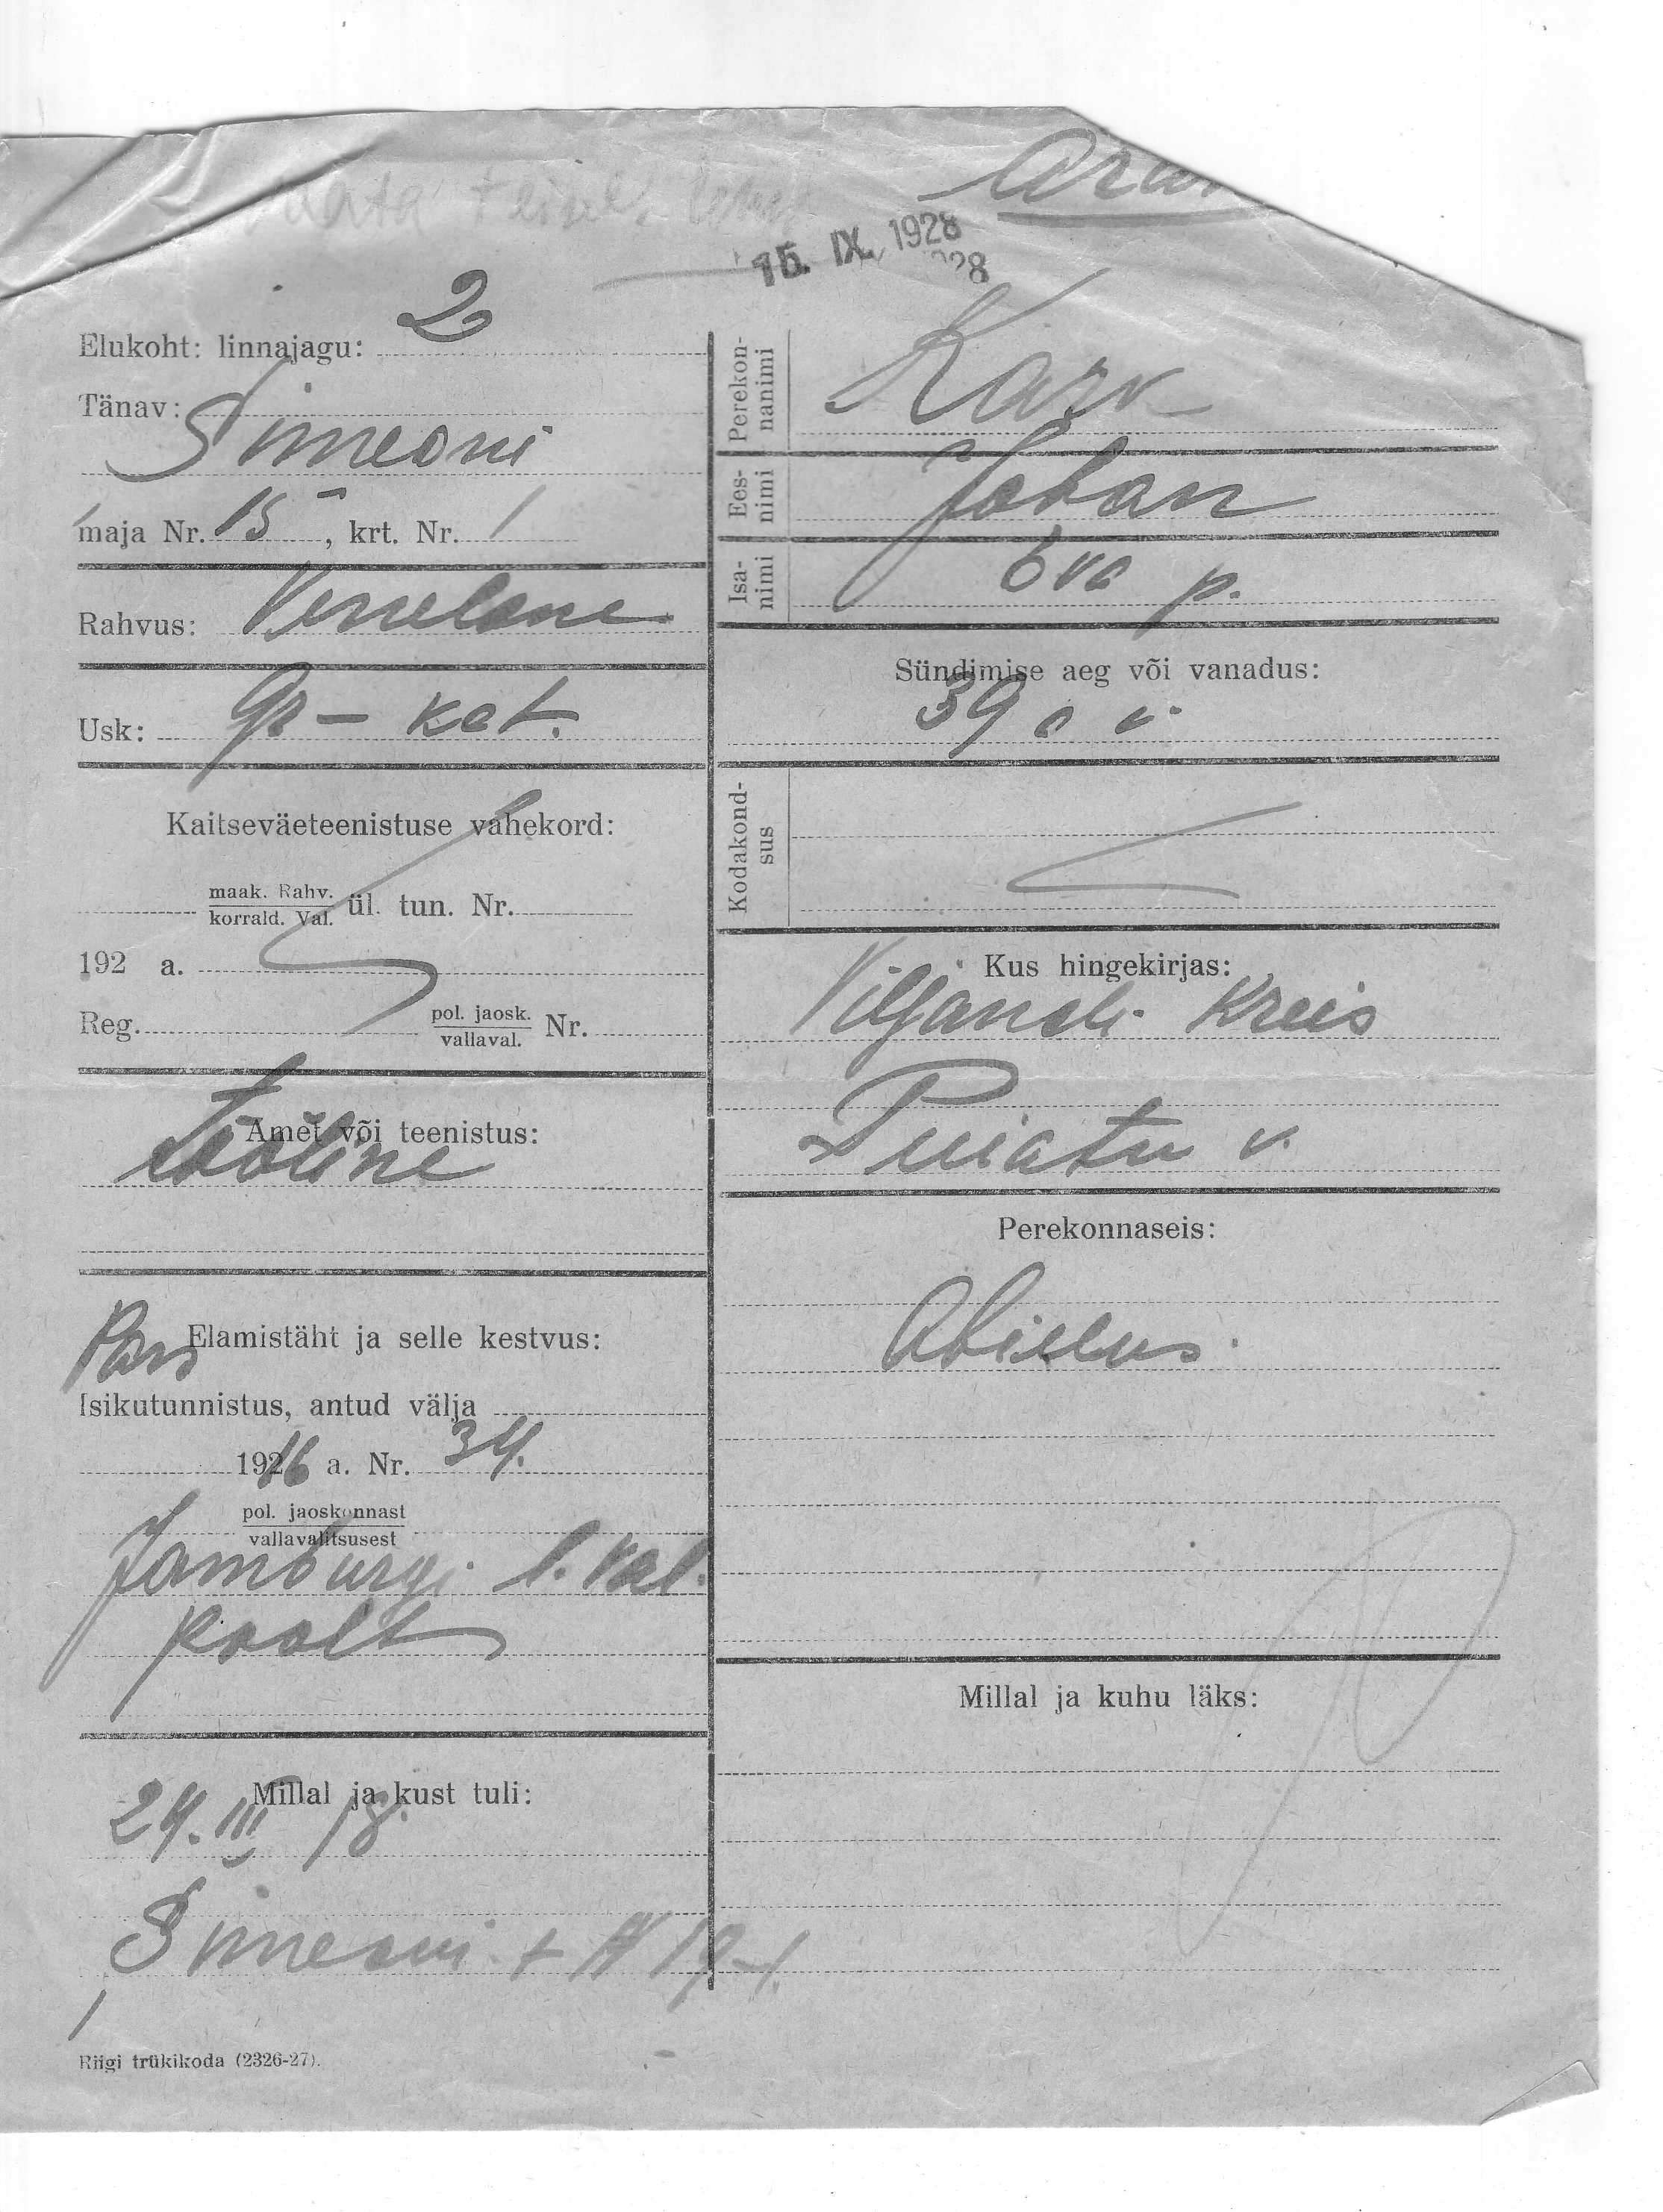 15. IX. 1928
Elukoht: linnajagu: 2
Tänav:
Simeoni
maja Nr. 15, krt. Nr. 1
Rahvus: Venelane
Usk: Gr - kat.
Kaitseväeteenistuse vahekord:
maak. Rahv.
korrald. Val. ül. tun. Nr.
192 a.
Reg. pol. jaosk.
vallaval. Nr.
Amet või teenistus:
Tööline
Elamistäht ja selle kestvus:
Pass
Isikutunnistus, antud välja
1916 a. Nr. 34.
pol. jaoskonnast
vallavalitsusest
Jamburgi l. val.
poolt
Millal ja kust tuli:
24. III 18.
Simeoni
Riigi trükikoda (2326-27).
Perekon-
nanimi
Karv
Ees-
nimi
Johan
Isa-
nimi
p.
Sündimise aeg või vanadus:
39 a v
Kodakond-
sus
Kus hingekirjas:
Viljandi Kreis
Puiatu v.
Perekonnaseis:
Abielus.
Millal ja kuhu läks: